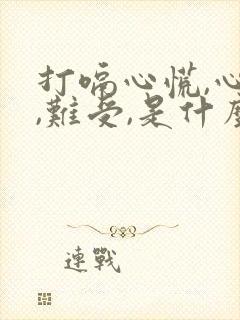 打嗝心慌,心
,難受,是什
連戰